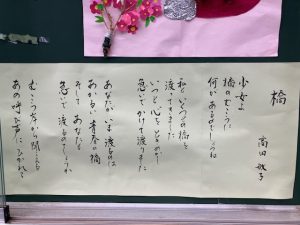 橋
高田敏子
少女よ
橋のむこうに
何があるのでしょうね
私も いくつの橋を
渡ってきました
いつも 心をときめかし
急いで かけて渡りました
あなたが いま渡るのは
あかるい青春の橋
そして あなたも
急いで渡るのでしょうか
むこう岸から聞える
あの呼び声にひかれて